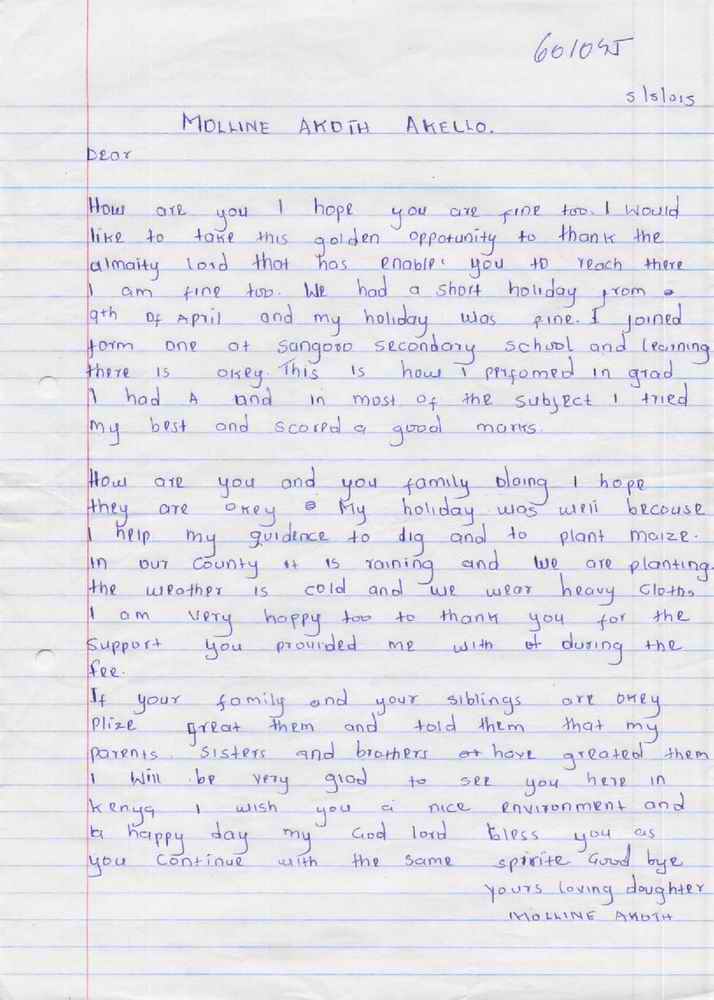 601045
5/5/015
MOLLINE AKOTH AKELLO.
Dear
How are you I hope you are fine too. I would
like to take this golden oppotunity to thank the
almaity lord that has enable you to reach there
I am fine too. We had a short holiday from
9th Of April and my holiday was fine. I joined
form one at secondary school and learning
there is okey. This is how I perfomed in grad
I had A and in most of the subject I tried
my best and scored a good marks.
How are you and you family doing I hope
they are okey My holiday was well because
I help my guidence to dig and to plant maize.
In our County it is raining and we are planting.
the weather is cold and we wear heavy Cloths
I am very happy too to thank you for the
support you provided me with during the
fee.
If your family and your siblings are okey
Plize great them and told them that my
parents. sisters and brothers have greated them
I will be very glad to see you here in
Kenya I wish you a nice environment and
a happy day my God lord bless you as
you continue with the same spirite Good bye
yours loving daughter
MOLLINE AKOTH